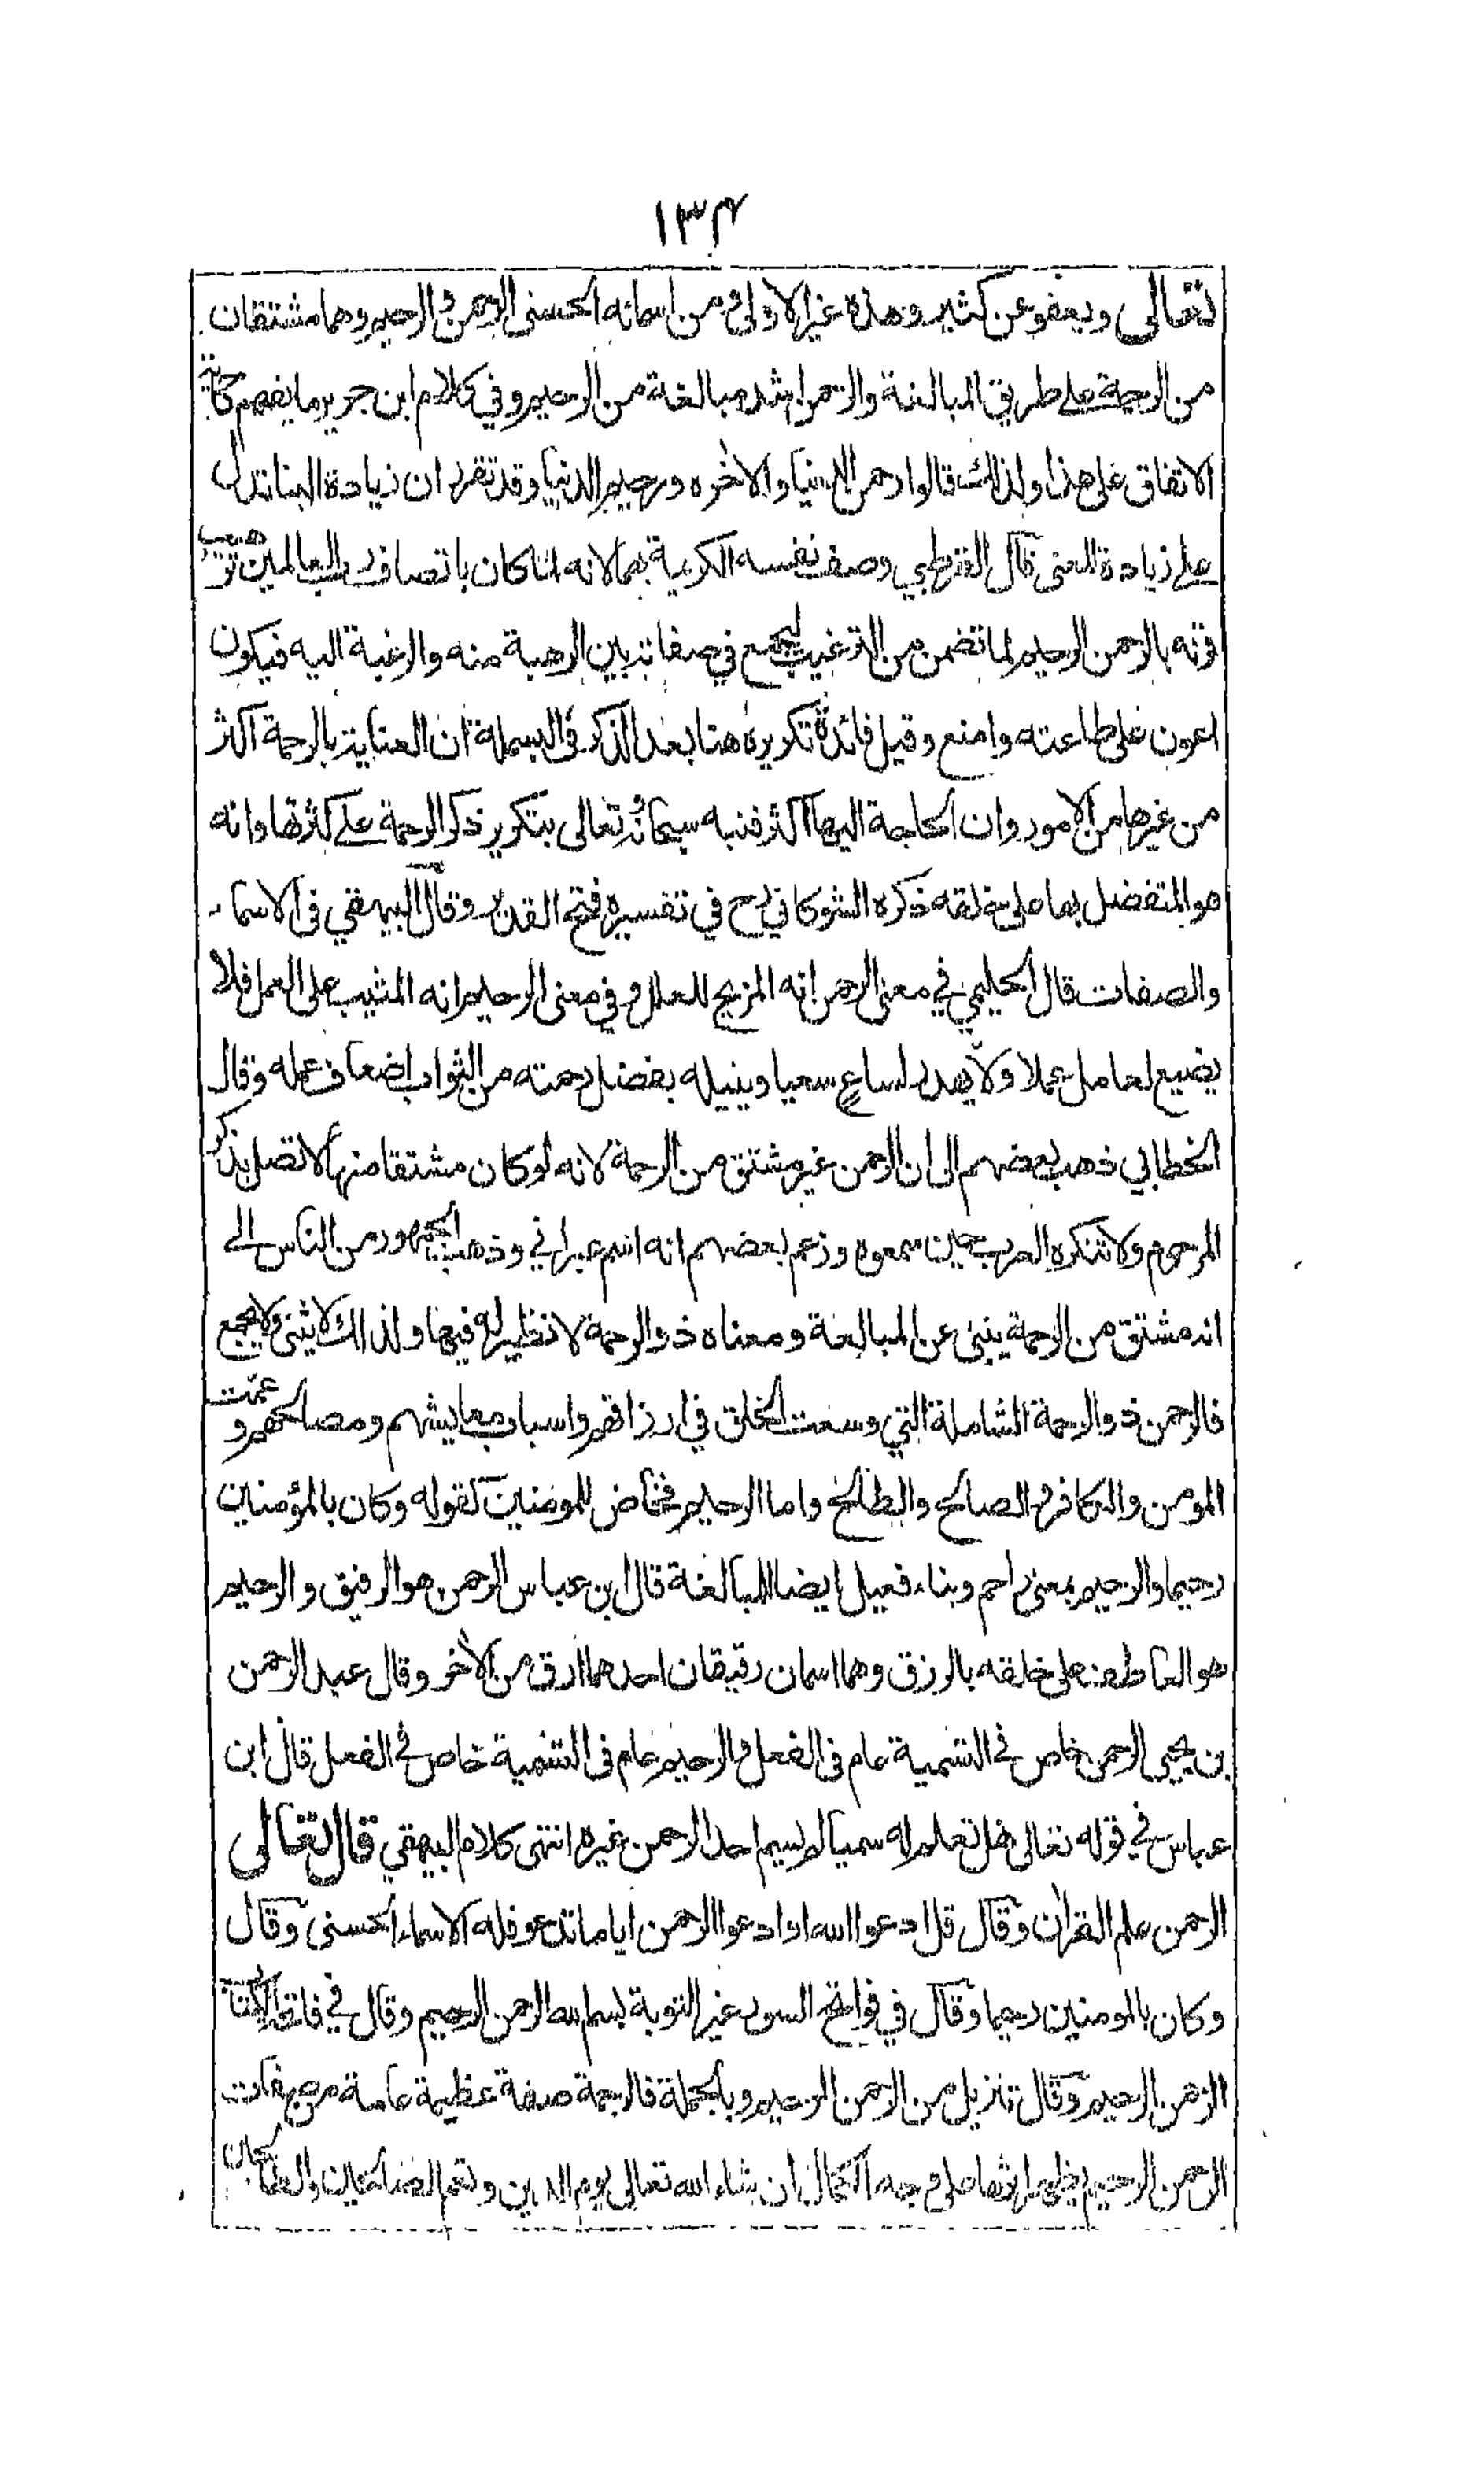 ١٣٤
تعالى ويعفو عن كثير وهذه غير الاولى ومن اسمائه الحسنى الرحمن والرحيم وهما مشتقان
من الرحمة على طريق المبالغة والرحمن اشد مبالغة من الرحيم وفي كلام ابن جرير ما يفهم حكاية
الاتفاق على هذا ولذلك قالوا رحمن الدنيا والاخره ورحيم الدنيا وقد تقرر ان زيادة البنا تدل
على زيادة المعنى قال القرطبي وصف نفسه الكريمة بهما لانه لما كان باتصاف رب العالمين ترهيب
قرنه بالرحمن الرحيم لما تضمن من الترغيب ليجمع في صفاته بين الرهبة منه والرغبة اليه فيكون
اعون على طاعته وامنع وقيل فائدة تكريره هنا بعد الذكر في البسملة ان العناية بالرحمة اكثر
من غيرها من الامور وان الحاجة اليها اكثر فنبه سبحانه تعالى بتكرير ذكر الرحمة على كثرتها وانه
هو المتفضل بها على خلقه ذكره الشوكاني رح في تفسيره فتح القدير وقال البيهقي في الاسماء
والصفات قال الحليمي في معنى الرحمن انه المزيح للعلل وفي معنى الرحيم انه المثيب على العمل فلا
يضيع لعامل عملا ولا يهدر لساع سعيا وينيله بفضل رحمته من الثواب اضعاف عمله وقال
الخطابي ذهب بعضهم الى ان الرحمن غير مشتق من الرحمة لانه لو كان مشتقا منها لاتصل بذكر
المرحوم ولا تنكره العرب حين سمعوه وزعم بعضهم انه اسم عبراني وذهب الجمهور من الناس الى
انه مشتق من الرحمة ينبئ عن المبالغة ومعناه ذو الرحمة لا نظير له فيها ولذلك لا يثنى ولا يجمع
فالرحمن ذو الرحمة الشاملة التي وسعت الخلق في ارزاقهم واسباب معايشهم ومصالحهم وعمت
المومن والكافر والصالح والطالح واما الرحيم فخاص للمومنين كقوله وكان بالمؤمنين
رحيما والرحيم بمعنى راحم وبناء فعيل ايضا للمبالغة قال ابن عباس الرحمن هو الرفيق والرحيم
هو العاطف على خلقه بالرزق وهما اسمان رقيقان احدهما ارق من الاخر وقال عبد الرحمن
بن يحيى الرحمن خاص في التسمية عام في الفعل والرحيم عام في التسمية خاص في الفعل قال ابن
عباس في قوله تعالى هل تعلم له سميا لم يسم احد الرحمن غيره انتهى كلام البيهقي قال تعالى
الرحمن علم القران وقال قل ادعوا الله او ادعوا الرحمن اياما تدعو فله الاسماء الحسنى وقال
وكان بالمومنين رحيما وقال في فواتح السور غير التوبة بسم الله الرحمن الرحيم وقال في فاتحة الكتاب
الرحمن الرحيم وقال تنزيل من الرحمن الرحيم وبالجملة فالرحمة صفة عظيمة عامة من صفات
الرحمن الرحيم يظهر اثرها على وجه الكمال ان شاء الله تعالى يوم الدين وتعم الصالحين والطالحين